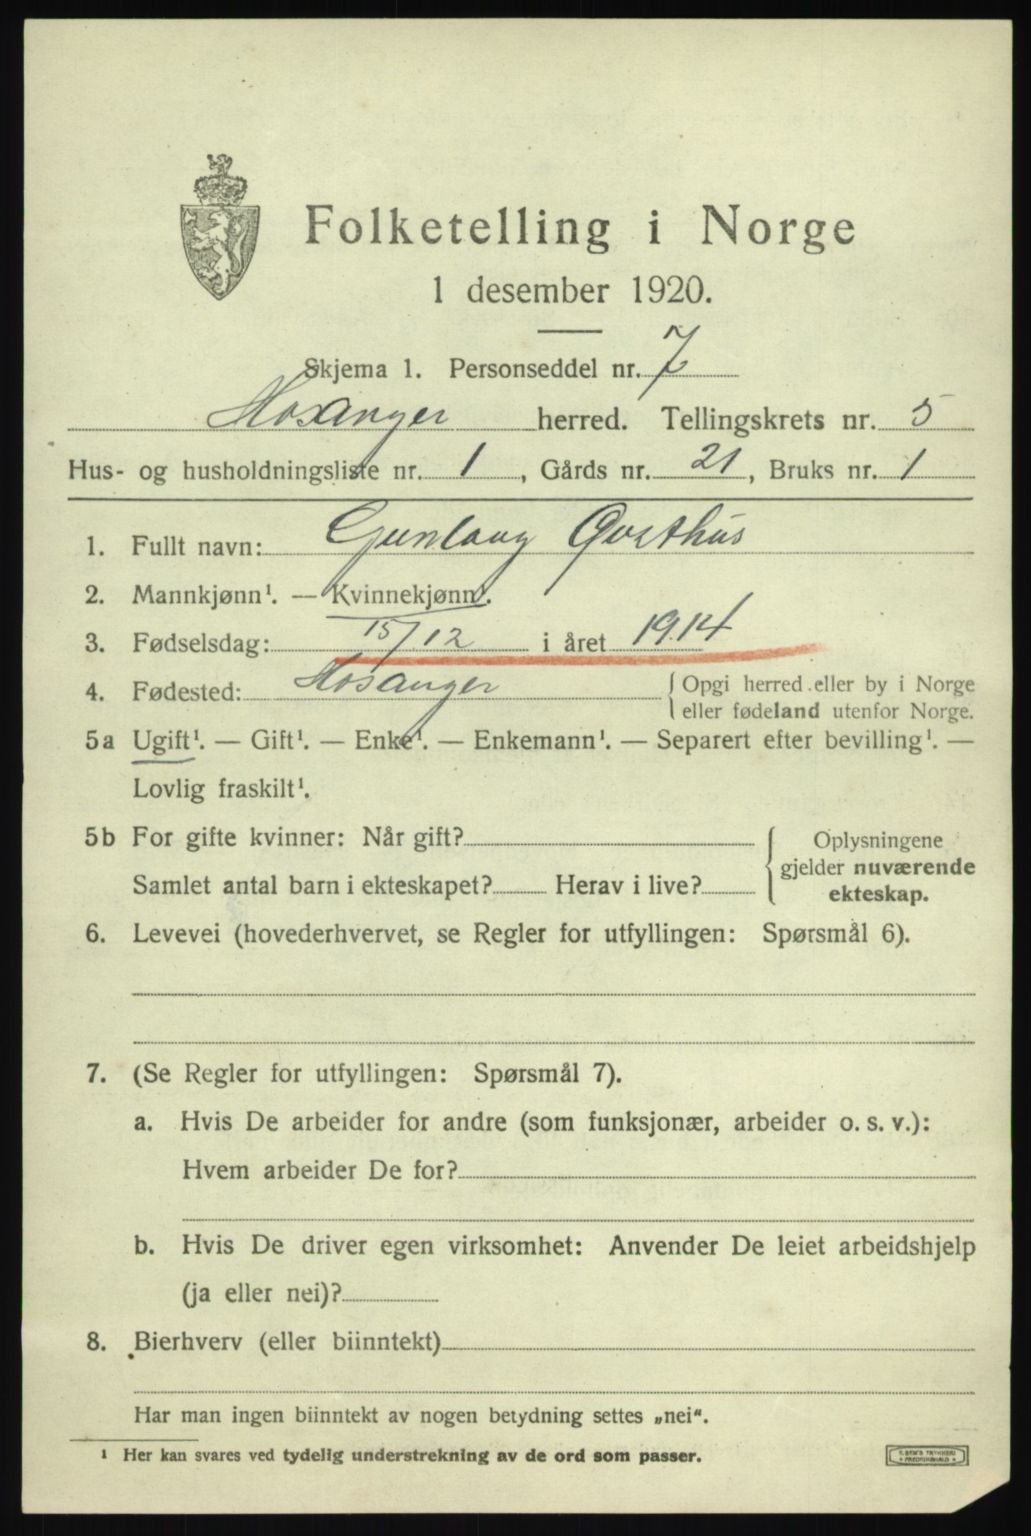 Folketelling i Norge
1 desember 1920.
Skjema 1. Personseddel nr. 7
Hosanger herred. Tellingskrets nr. 5
Hus- og husholdningsliste nr. 1, Gårds nr. 21, Bruks nr. 1
1. Fullt navn: Gunlaug Østhus
2. Mannkjønn¹. — Kvinnekjønn¹.
3. Fødselsdag: 15/12 i året 1914
4. Fødested: Hosanger { Opgi herred eller by i Norge
eller fødeland utenfor Norge.
5a Ugift¹. — Gift¹. — Enke¹. — Enkemann¹. — Separert efter bevilling¹. —
Lovlig fraskilt¹.
5b For gifte kvinner: Når gift?
Samlet antal barn i ekteskapet? Herav i live?
{ Oplysningene
gjelder nuværende
ekteskap.
6. Levevei (hovederhvervet, se Regler for utfyllingen: Spørsmål 6).
7. (Se Regler for utfyllingen: Spørsmål 7).
a. Hvis De arbeider for andre (som funksjonær, arbeider o. s. v.):
Hvem arbeider De for?
b. Hvis De driver egen virksomhet: Anvender De leiet arbeidshjelp
(ja eller nei)?
8. Bierhverv (eller biinntekt)
Har man ingen biinntekt av nogen betydning settes „nei".
¹ Her kan svares ved tydelig understrekning av de ord som passer.